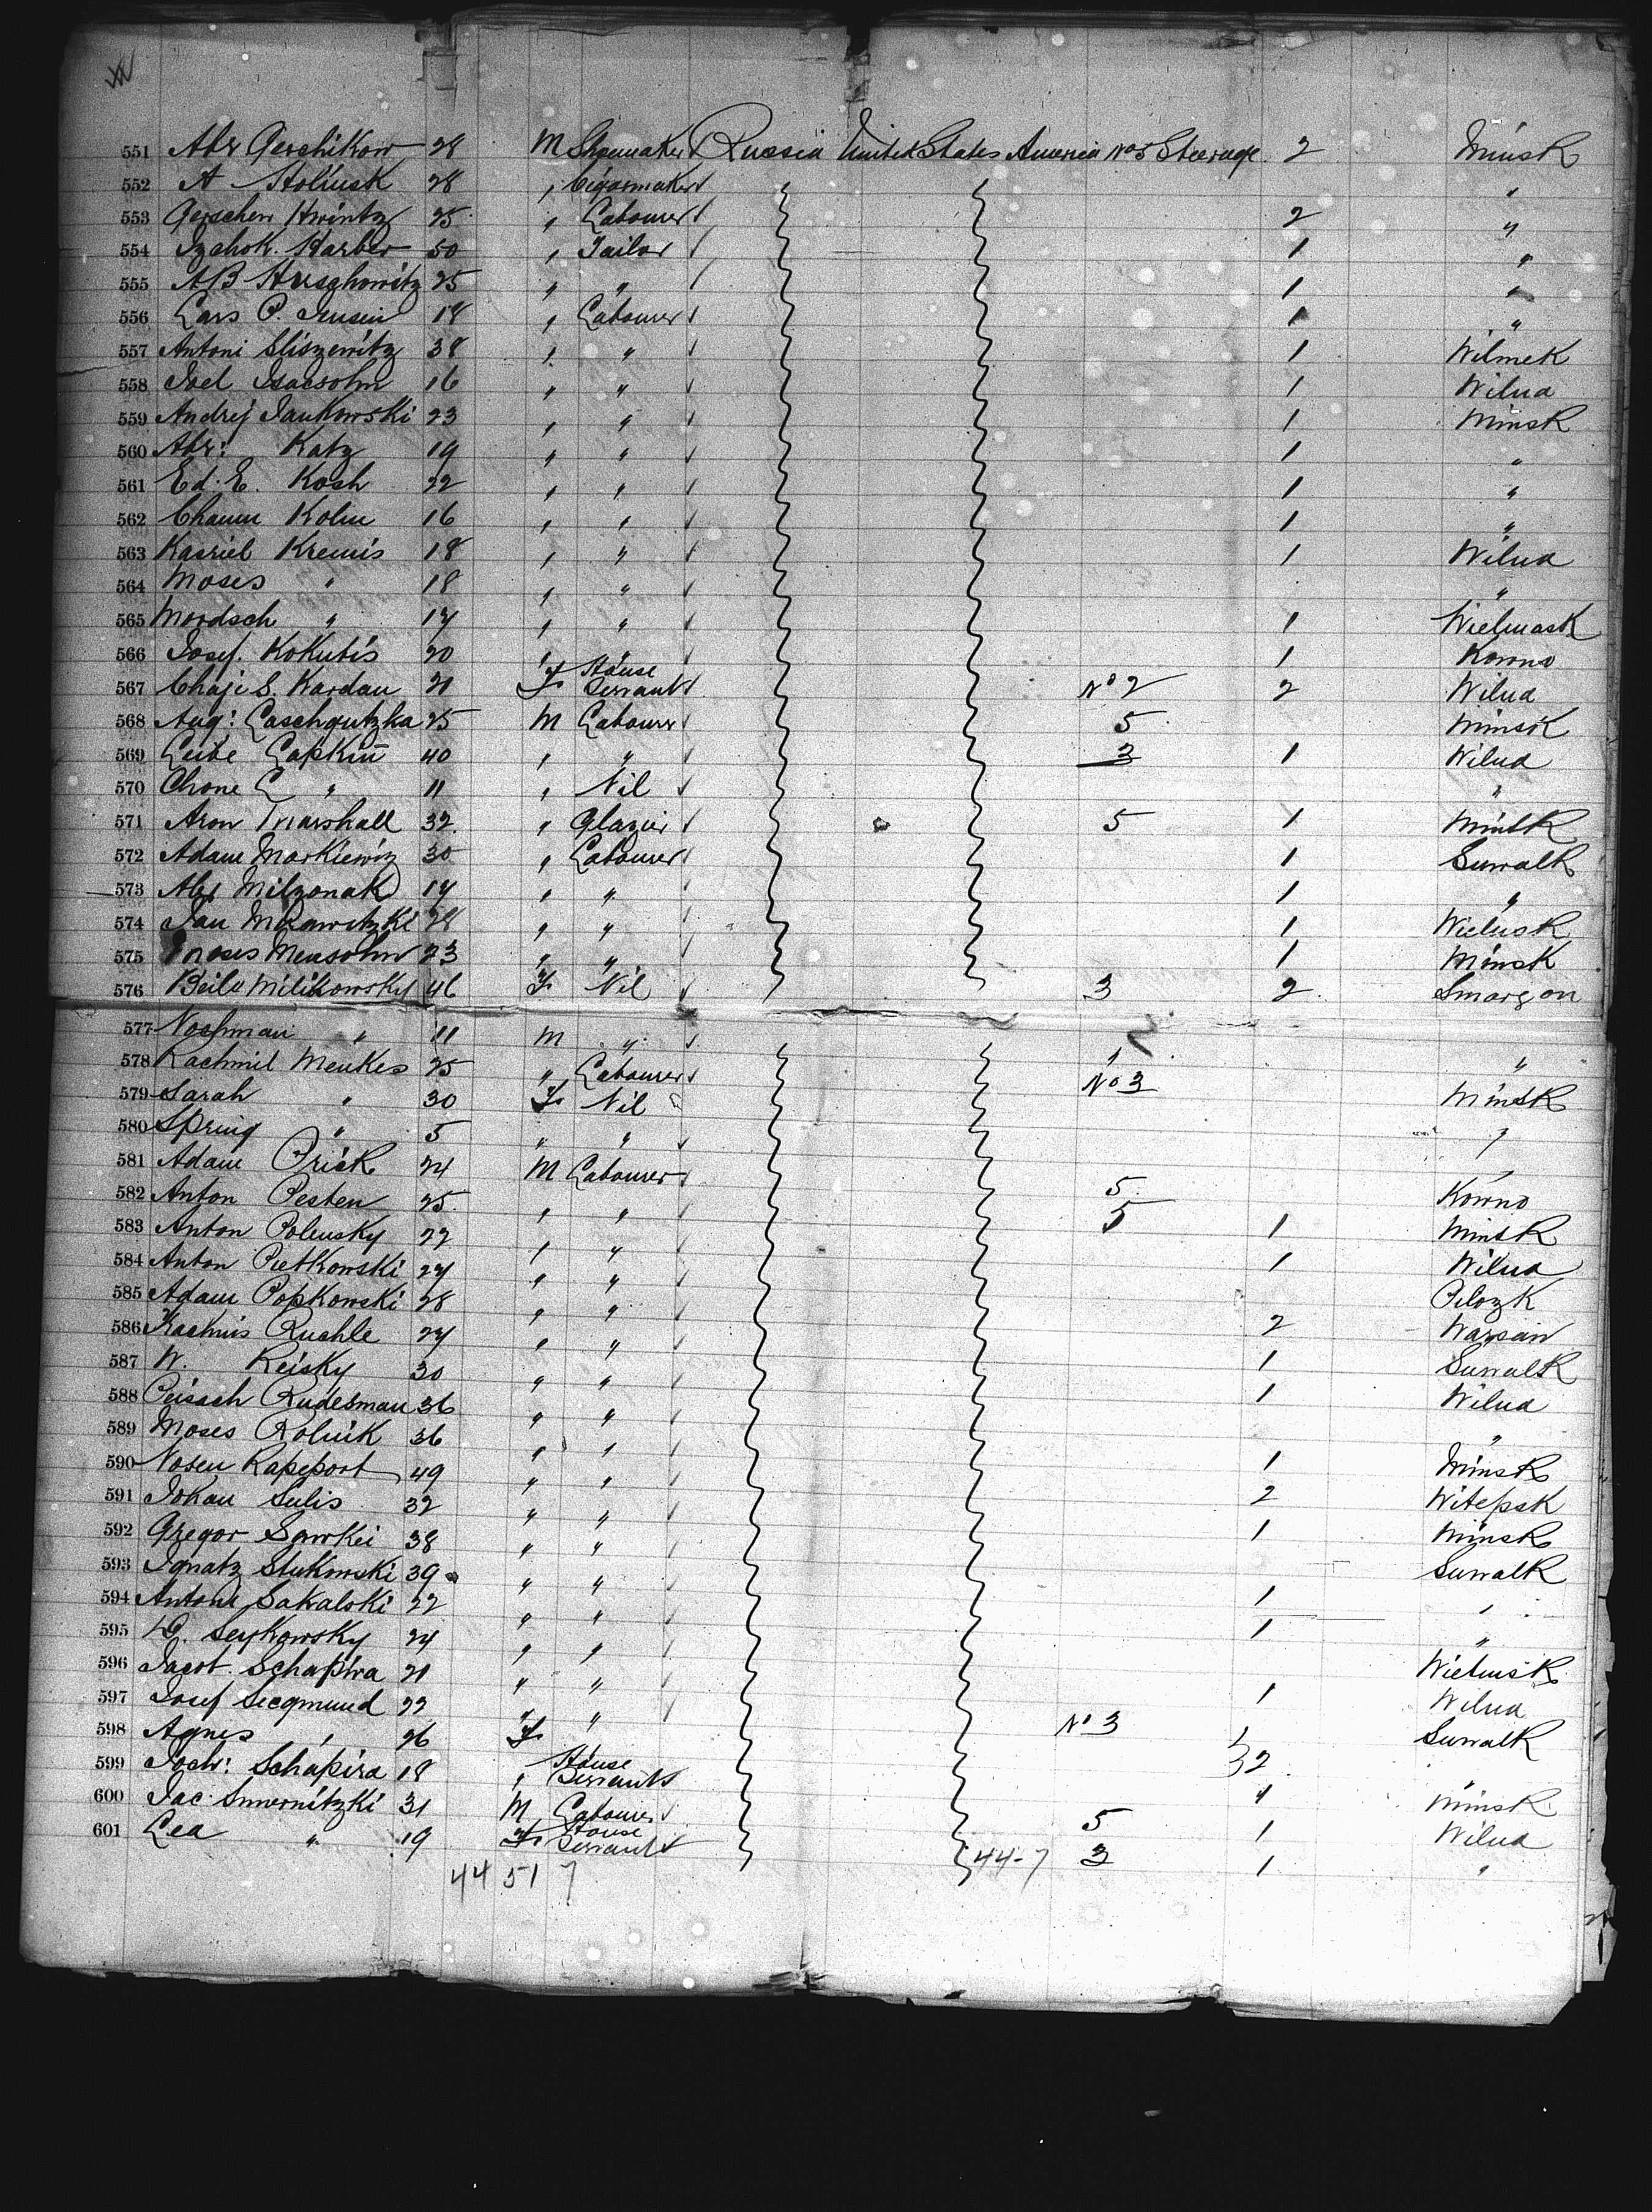 551 Abr Gerchikow 28 M Shoemaker Russia United States America No 5 Steerage 2 Minsk
552 A Stolinsk 28 " Cigarmaker "
553 Gerschen Hwintz 25 " Labourer 2 "
554 Izchok. Karber 50 " Tailor 1 "
555 AB Herschowitz 25 " " 1 "
556 Lars P. Jensen 18 " Labourer 1 "
557 Antoni Sliszewitz 38 " " 1 Wilmek
558 Joel Isacsohn 16 " " 1 Wilna
559 Andrej Jankowski 23 " " 1 Minsk
560 Abr: Katz 19 " " 1 "
561 Ed. E. Kosh 22 " " 1 "
562 Chaim Kolm 16 " " 1 "
563 Kasriel Kremis 18 " " 1 Wilna
564 Moses " 18 " " "
565 Mordsch " 17 " " 1 Wielmask
566 Josef. Kokutis 20 " " 1 Kowno
567 Chaje S. Kardau 21 F House Servant No 2 2 Wilna
568 Aug: Laschgutzka 25 M Labourer 5 Minsk
569 Leibe Lapkin 40 " " 3 1 Wilna
570 Chone L " 11 " Nil "
571 Aron Marshall 32 " Glazier 5 1 Minsk
572 Adam Markiewiz 30 " Labourer 1 Suwalk
573 Abr Milzonak 17 " " 1 "
574 Jan Mirawitzki 28 " " 1 Wielusk
575 Moses Mensohn 23 " " 1 Minsk
576 Beile Milikowsky 46 F Nil 3 2 Smargon
577 Nochman " 11 M " " "
578 Rachmil Menkes 25 " Labourer No 3 Minsk
579 Sarah " 30 F Nil "
580 Spring " 5 " "
581 Adam Prisk 24 M Labourer 5 Kowno
582 Anton Pesten 25 " " 5 1 Minsk
583 Anton Polensky 22 " " 1 Wilna
584 Anton Pietkowski 27 " " Plozk
585 Adam Popkowski 28 " " 2 Warsaw
586 Kachnis Ruchle 27 " " 1 Suwalk
587 W. Reisky 30 " " 1 Wilna
588 Peisach Rudesman 36 " " "
589 Moses Rolnik 36 " " 1 Minsk
590 Nosen Rapeport 49 " " 2 Witepsk
591 Johan Sulis 32 " " 1 Minsk
592 Gregor Sawkei 38 " " Suwalk
593 Ignatz Stukowski 39 " " 1 "
594 Antoni Sakalski 22 " " 1 "
595 D. Seykowsky 24 " " Wielmsk
596 Jacob. Schapira 21 " " 1 Wilna
597 Josef Siegmund 22 " " Suwalk
598 Agnes " 26 F No 3 1
599 Joch: Schapira 18 " House Servant 2 Minsk
600 Jac: Smernitzki 31 M Labourer 5 1 Wilna
601 Lea " 19 F House Servant 3 1 "
44 51 7 44-7